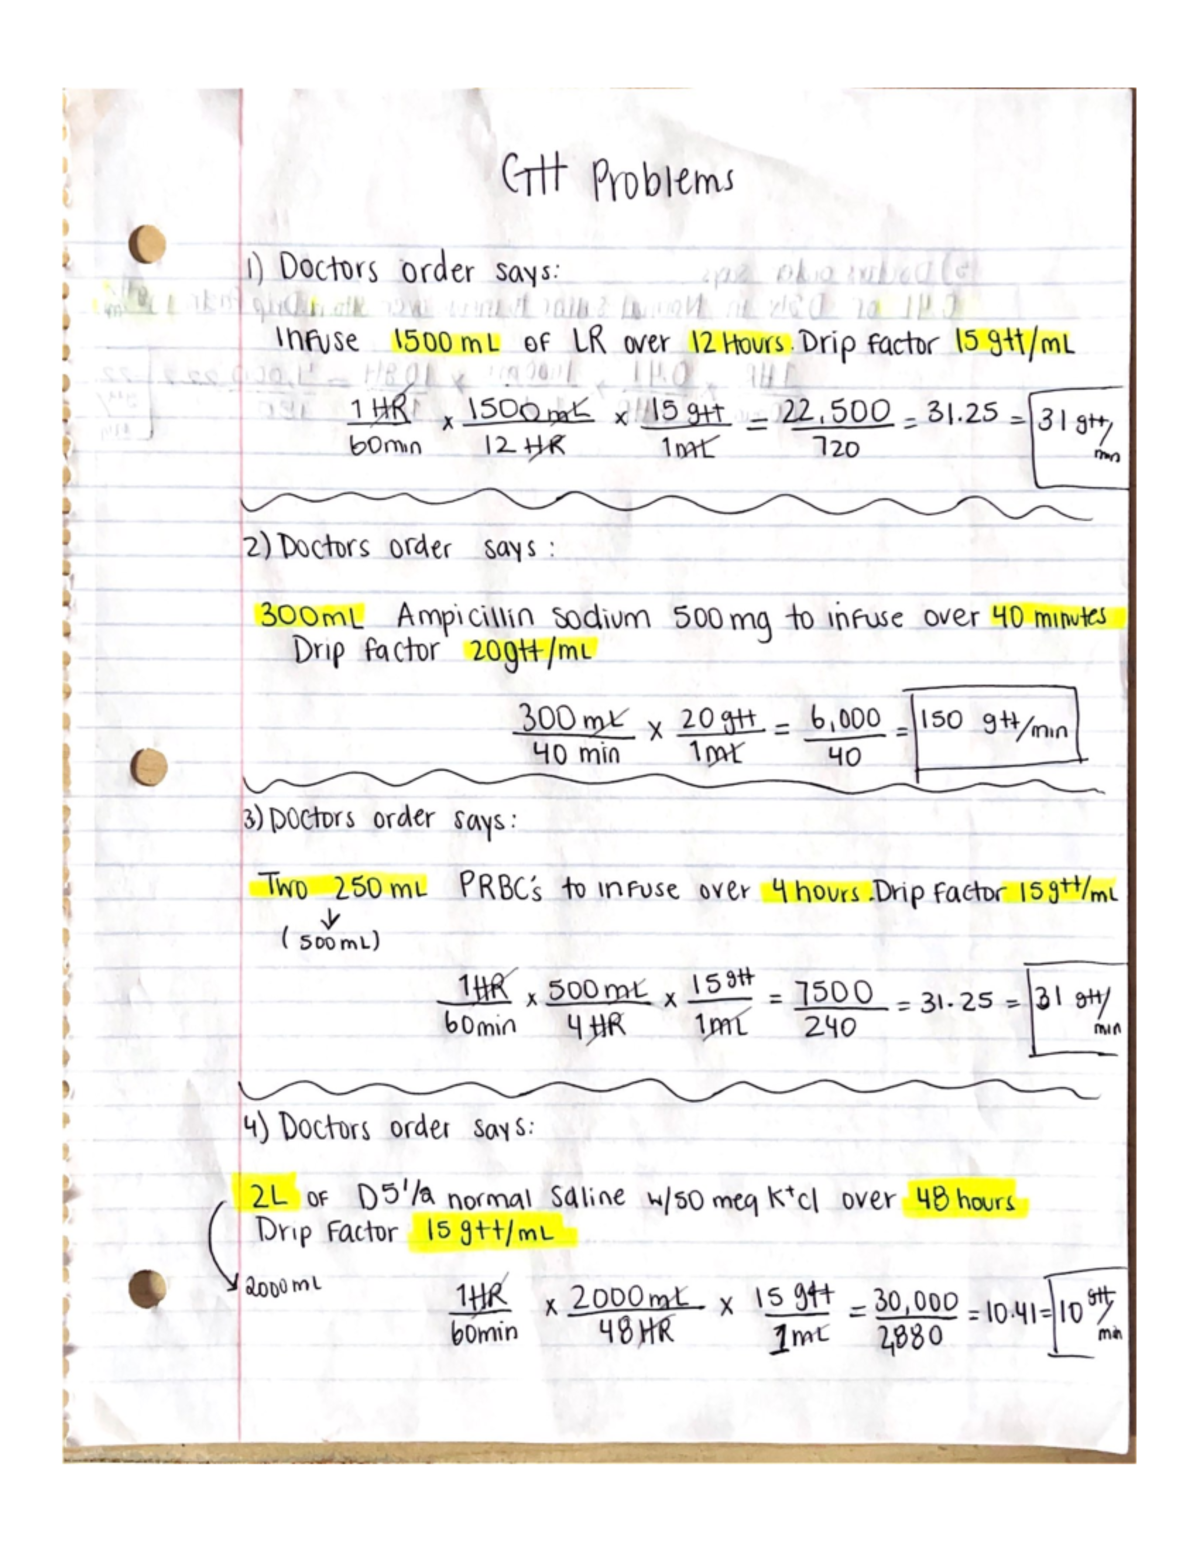 Gtt Problems
1) Doctors order says:
Infuse 1500 mL of LR over 12 Hours. Drip factor 15 gtt/mL
1 HR/60min x 1500 mL/12 HR x 15 gtt/1mL = 22,500/720 = 31.25 = 31 gtt/min
2) Doctors order says:
300mL Ampicillin sodium 500mg to infuse over 40 minutes
Drip factor 20gtt/mL
300 mL/40 min x 20 gtt/1mL = 6,000/40 = 150 gtt/min
3) Doctors order says:
Two 250 mL PRBC's to infuse over 4 hours. Drip factor 15gtt/mL
(500mL)
1HR/60min x 500 mL/4 HR x 15 gtt/1mL = 7500/240 = 31.25 = 31 gtt/min
4) Doctors order says:
2L OF D5 1/2 normal saline w/50 meq K+cl over 48 hours
Drip Factor 15 gtt/mL
2000mL
1HR/60min x 2000mL/48HR x 15 gtt/1mL = 30,000/2,880 = 10.41 = 10 gtt/min